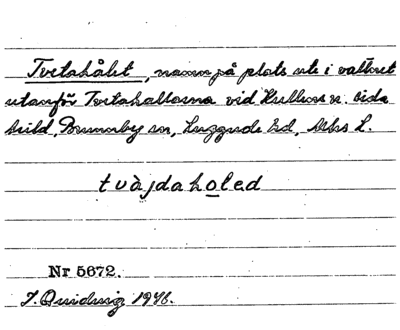 Tvetahålet, namn på plats ute i vattnet
utanför Tvetahallarna vid Kullens n. sida
Brunnby sn, Luggude hd, Mhs L.
tvàjdaholed
Nr 5672.
J. Quiding 1946.